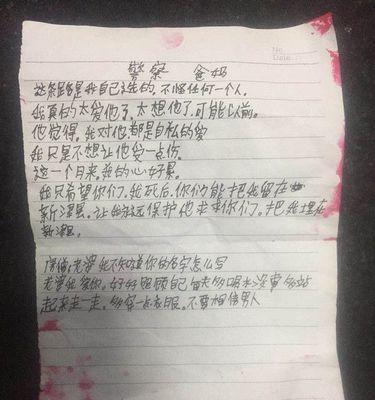 No
Date
警察 爸妈
这条路是我自己选的,不怪任何一个人
我真的太爱他了,太想他了,可能以前。
他觉得,我对他都是自私的爱
我只是不想让他受一点伤
这一个月来,我的心好累。
我只希望你们,我死后,你们能把我留在
新 让我永远保护他求求你们。把我埋在
新
老婆我不知道你的名字怎么写
老婆我爱你。好好照顾自己每天多喝水没事多站
起来走一走。多穿一点衣服。不要相信男人